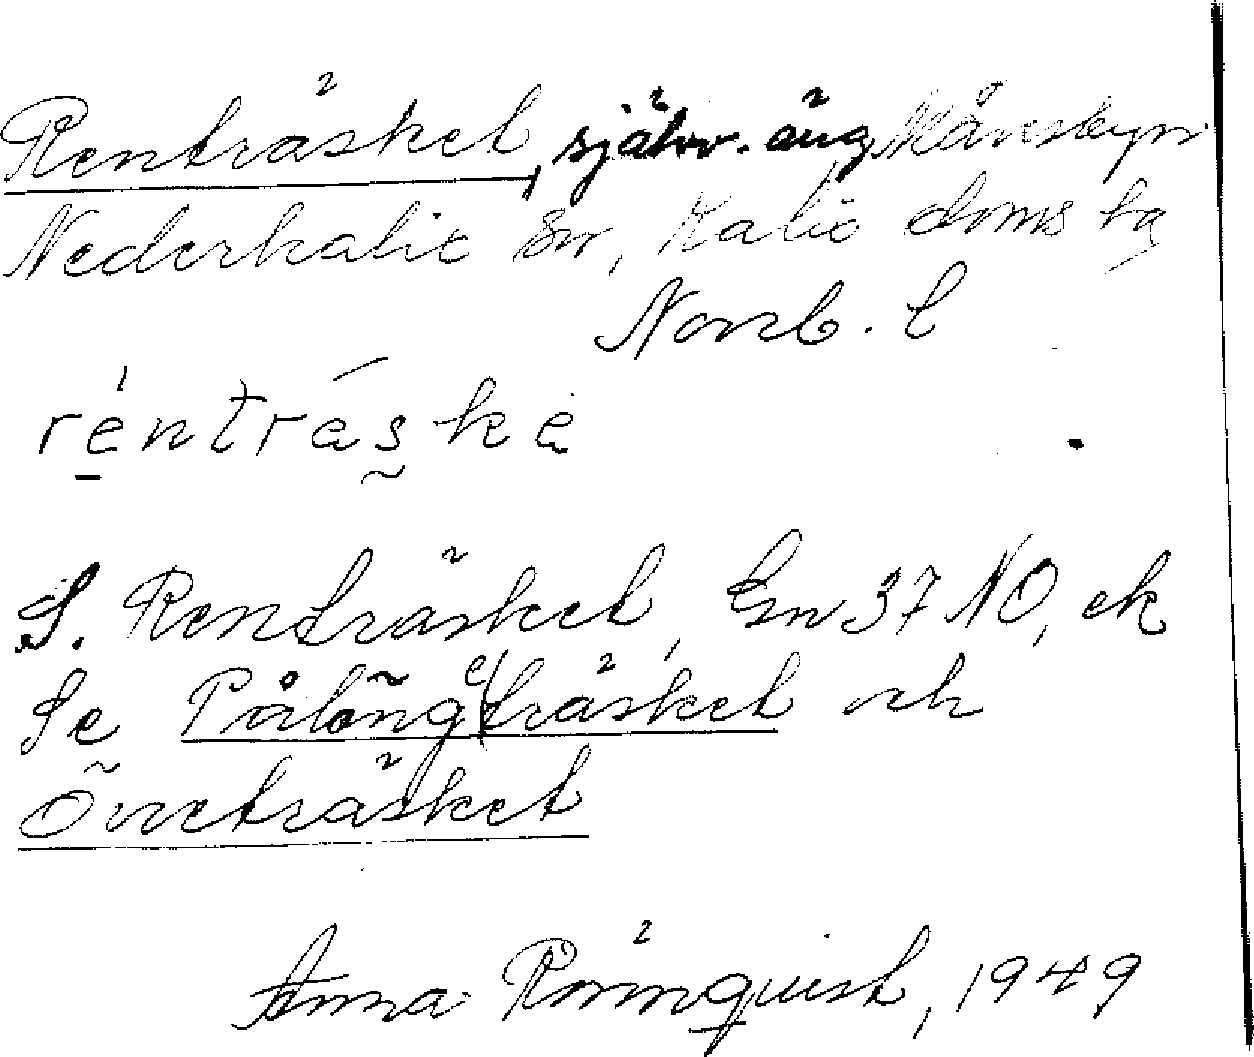 Renträsket, självv. äng Månsbyn
Nederkalix sn, Kalix doms tg
Norrb. l
réntráskə
S. Renträsket, Gen 37 NO, ek
Se Pålängeträsket och
Övreträsket
Anna Rönnquist, 1949